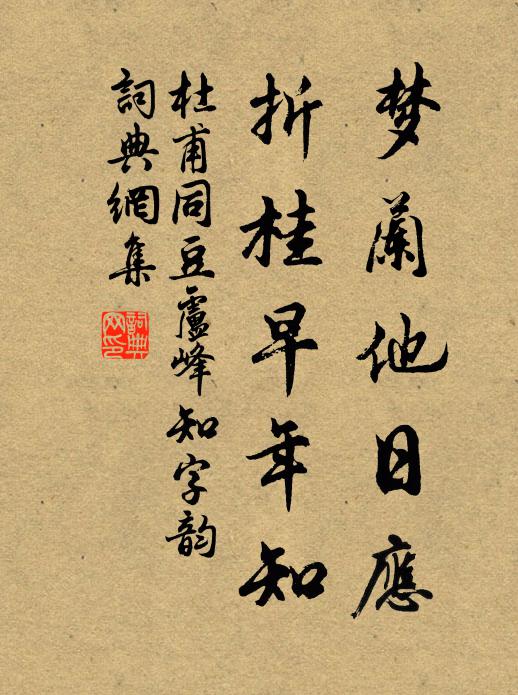 梦蘭他日應
折桂早年知
杜甫同豆盧峰知字韵
詞典網集
詞典网印